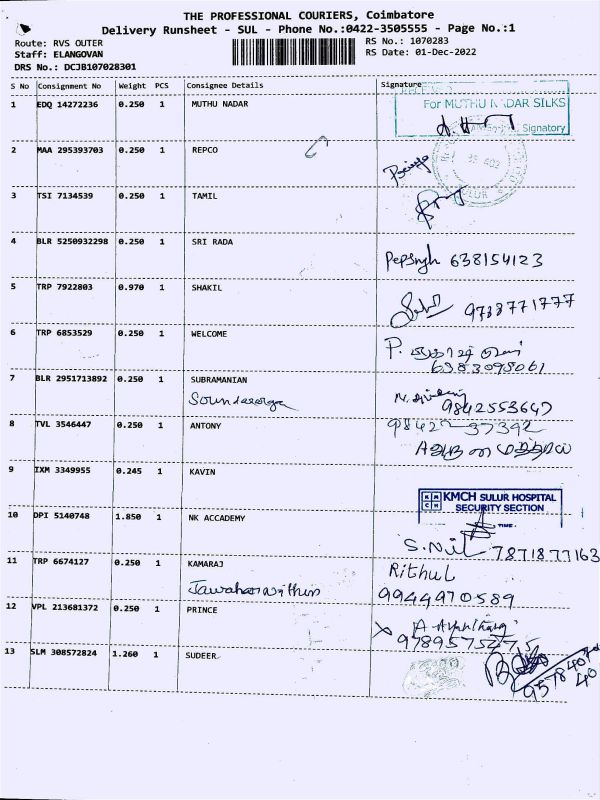 THE PROFESSIONAL COURIERS, Coimbatore
Delivery Runsheet - SUL - Phone No.:0422-3505555 - Page No.:1
Route: RVS OUTER RS No.: 1070283
Staff: ELANGOVAN RS Date: 01-Dec-2022
DRS No.: DCJB107028301
S No Consignment No Weight PCS Consignee Details Signature
1 EDQ 14272236 0.250 1 MUTHU NADAR
For MUTHU NADAR SILKS
Signatory
2 MAA 295393703 0.250 1 REPCO
3 TSI 7134539 0.250 1 TAMIL
4 BLR 5250932298 0.250 1 SRI RADA
638154123
5 TRP 7922803 0.970 1 SHAKIL
9788771777
6 TRP 6853529 0.250 1 WELCOME
P.
6383095061
7 BLR 2951713892 0.250 1 SUBRAMANIAN
9842553647
8 TVL 3546447 0.250 1 ANTONY
9 IXM 3349955 0.245 1 KAVIN
KMCH SULUR HOSPITAL
SECURITY SECTION
TIME
10 DPI 5140748 1.850 1 NK ACCADEMY
7871877163
11 TRP 6674127 0.250 1 KAMARAJ
Rithul
9944970589
12 VPL 213681372 0.250 1 PRINCE
13 SLM 308572824 1.260 1 SUDEER